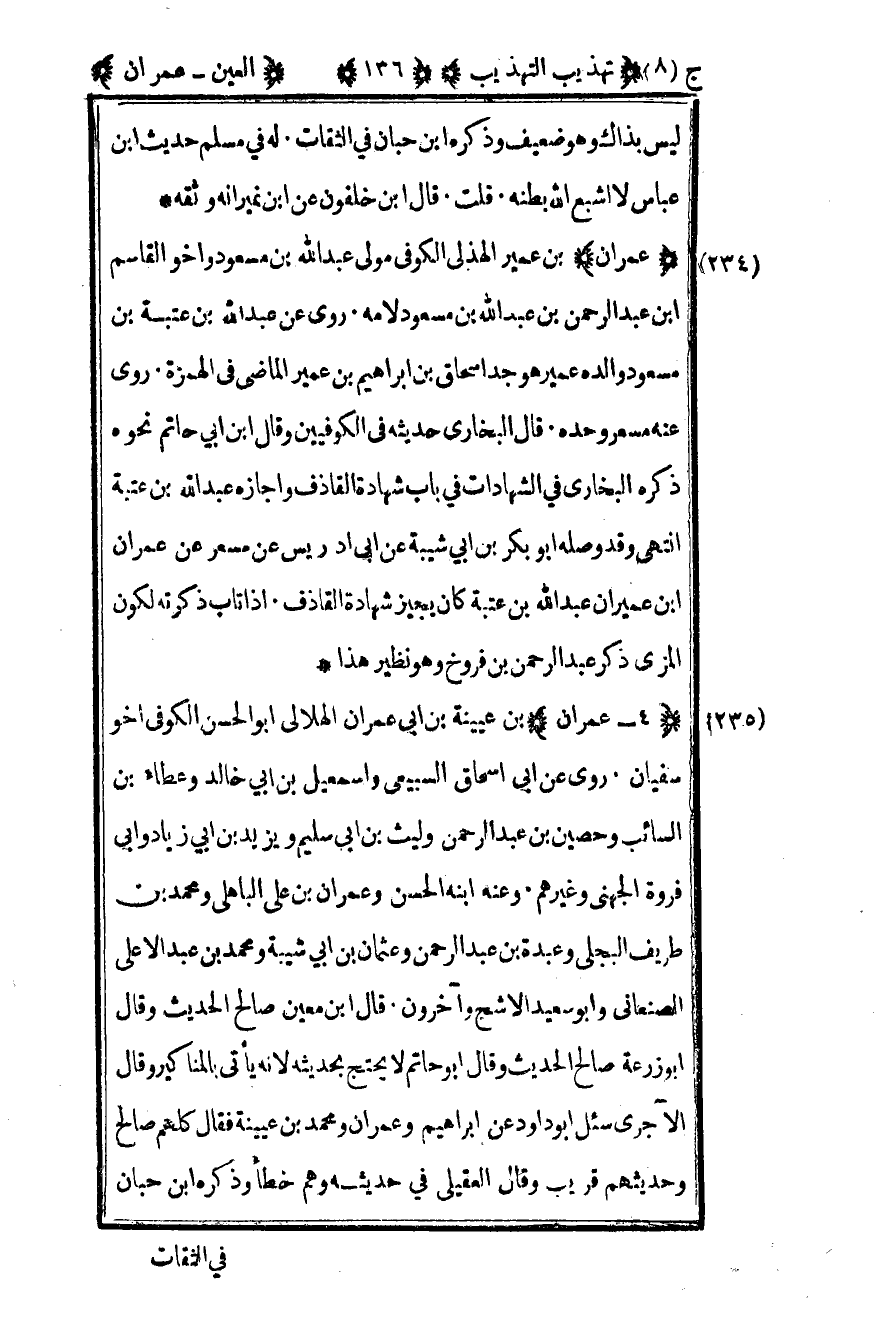 ج (٨) ﴿ تهذيب التهذيب ﴾ ﴿ ١٣٦ ﴾ ﴿ العين ـ عمران ﴾
ليس بذاك وهو ضعيف وذكره ابن حبان في الثقات ٠ له في مسلم حديث ابن
عباس لا اشبع الله بطنه ٠ قلت ٠ قال ابن خلفون عن ابن نمير انه وثقه *
(٢٣٤) ﴿ عمران ﴾ بن عمير الهذلى الكوفى مولى عبدالله بن مسعود واخو القاسم
ابن عبدالرحمن بن عبدالله بن مسعود لامه ٠ روى عن عبدالله بن عتبة بن
مسعود والده عمير هو جد اسحاق بن ابراهيم بن عمير الماضى فى الهمزة ٠ روى
عنه مسعر وحده ٠ قال البخارى حديثه فى الكوفيين وقال ابن ابي حاتم نحوه
ذكره البخارى في الشهادات في باب شهادة القاذف واجازه عبدالله بن عتبة
انتهى وقد وصله ابو بكر بن ابي شيبة عن ابى ادريس عن مسعر عن عمران
ابن عمير ان عبدالله بن عتبة كان يجيز شهادة القاذف ٠ اذا تاب ذكرته لكون
المزى ذكر عبدالرحمن بن فروخ وهو نظير هذا *
(٢٣٥) ﴿ ٤ ـ عمران ﴾ بن عيينة بن ابى عمران الهلالى ابو الحسن الكوفى اخو
سفيان ٠ روى عن ابى اسحاق السبيعى واسمعيل بن ابي خالد وعطاء بن
السائب وحصين بن عبدالرحمن وليث بن ابى سليم ويزيد بن ابي زياد وابى
فروة الجهنى وغيرهم ٠ وعنه ابنه الحسن وعمران بن على الباهلى ومحمد بن
طريف البجلى وعبدة بن عبدالرحمن وعثمان بن ابي شيبة ومحمد بن عبد الاعلى
الصنعانى وابو سعيد الاشج وآخرون ٠ قال ابن معين صالح الحديث وقال
ابو زرعة صالح الحديث وقال ابو حاتم لا يحتج بحديثه لانه يأتى بالمناكير وقال
الآجرى سئل ابو داود عن ابراهيم وعمران ومحمد بن عيينة فقال كلهم صالح
وحديثهم قريب وقال العقيلى في حديثه وهم خطأ وذكره ابن حبان
في الثقات